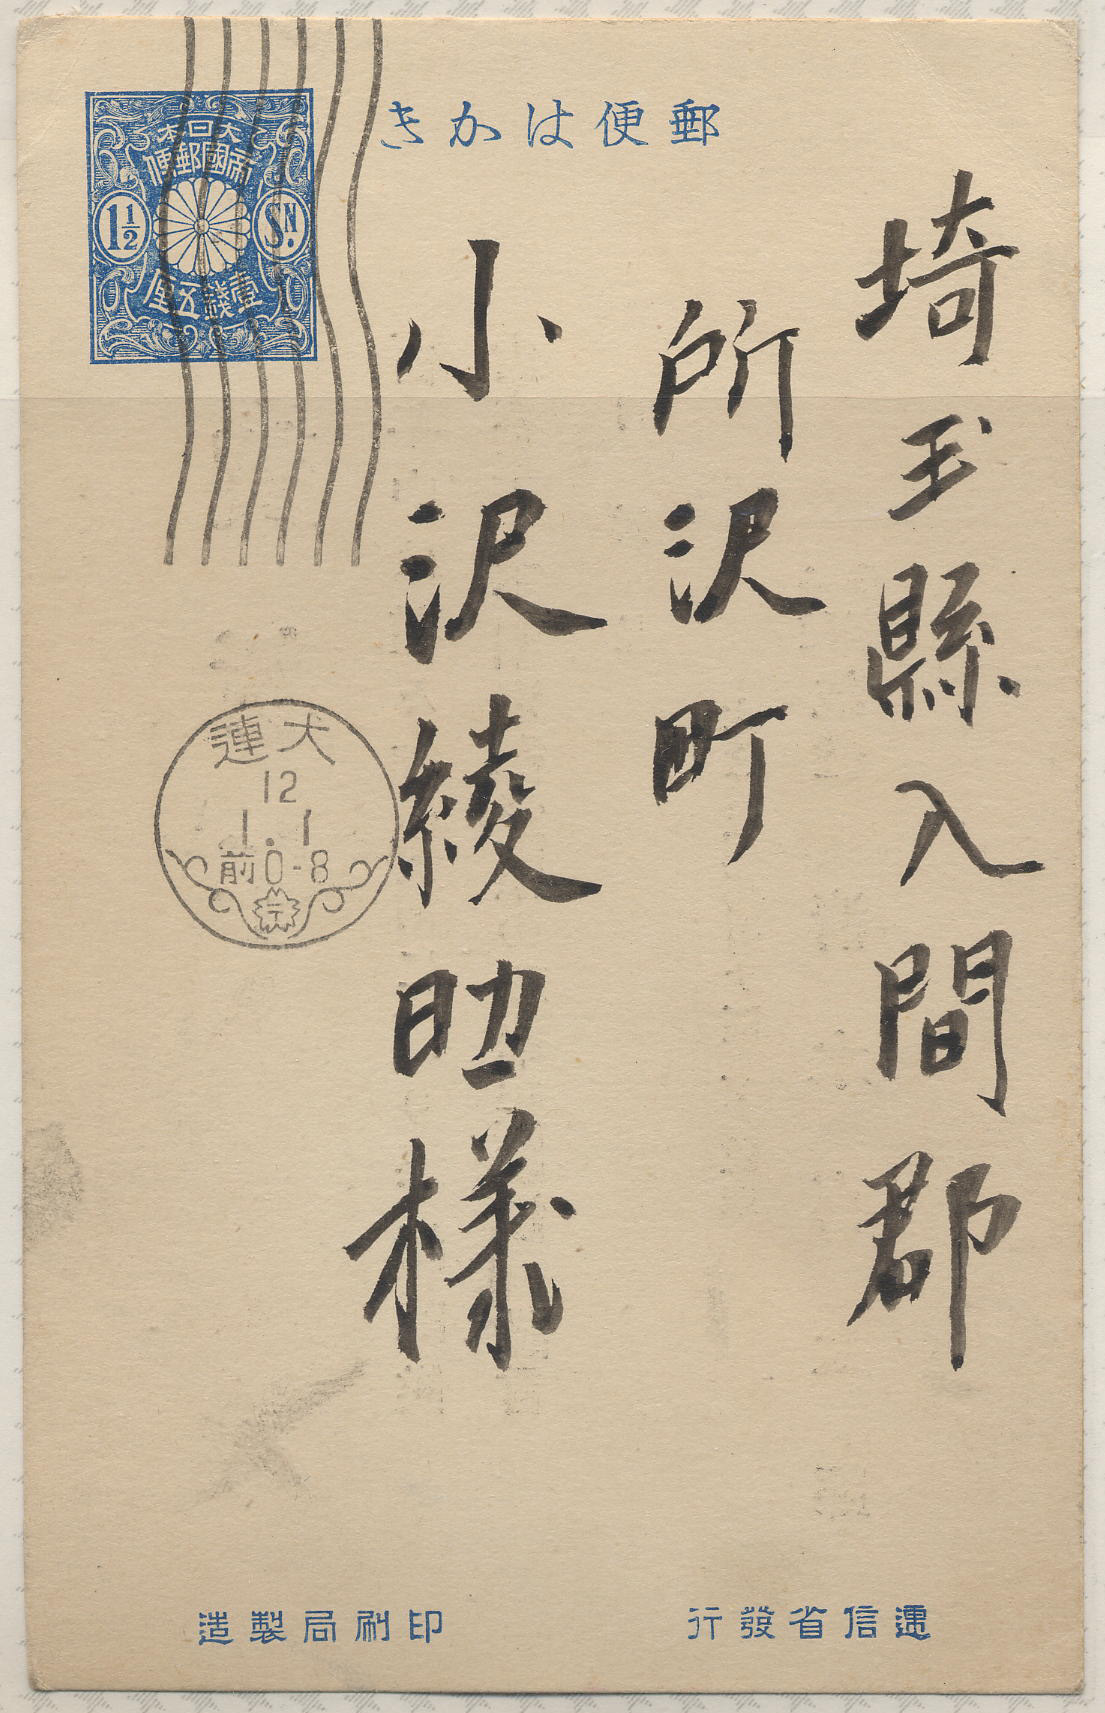 郵便はかき
大日本
帝國郵便
1½
SN.
壹錢五厘
埼玉縣入間郡
所沢町
小沢綾助様
大連
12
1.1
前0-8
遞信省發行
印刷局製造